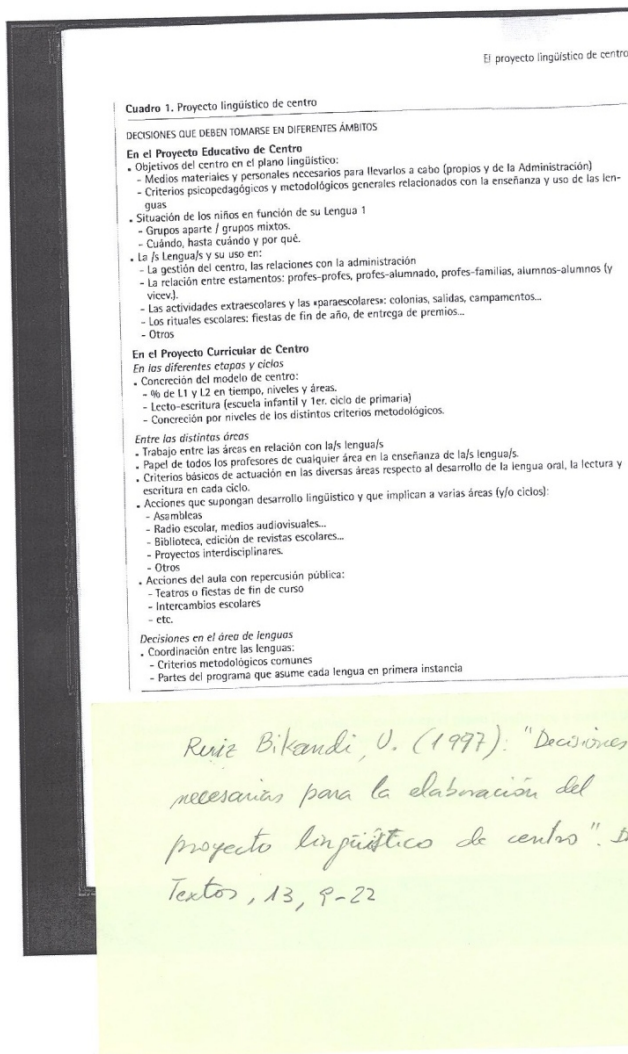 El proyecto lingüístico de centro
Cuadro 1. Proyecto lingüístico de centro
DECISIONES QUE DEBEN TOMARSE EN DIFERENTES ÁMBITOS
En el Proyecto Educativo de Centro
• Objetivos del centro en el plano lingüístico:
- Medios materiales y personales necesarios para llevarlos a cabo (propios y de la Administración)
- Criterios psicopedagógicos y metodológicos generales relacionados con la enseñanza y uso de las len-
guas
• Situación de los niños en función de su Lengua 1
- Grupos aparte / grupos mixtos.
- Cuándo, hasta cuándo y por qué.
• La /s Lengua/s y su uso en:
- La gestión del centro, las relaciones con la administración
- La relación entre estamentos: profes-profes, profes-alumnado, profes-familias, alumnos-alumnos (y
vicev.).
- Las actividades extraescolares y las «paraescolares»: colonias, salidas, campamentos...
- Los rituales escolares: fiestas de fin de año, de entrega de premios...
- Otros
En el Proyecto Curricular de Centro
En las diferentes etapas y ciclos
• Concreción del modelo de centro:
- % de L1 y L2 en tiempo, niveles y áreas.
- Lecto-escritura (escuela infantil y 1er. ciclo de primaria)
- Concreción por niveles de los distintos criterios metodológicos.
Entre las distintas áreas
• Trabajo entre las áreas en relación con la/s lengua/s
• Papel de todos los profesores de cualquier área en la enseñanza de la/s lengua/s.
• Criterios básicos de actuación en las diversas áreas respecto al desarrollo de la lengua oral, la lectura y
escritura en cada ciclo.
• Acciones que supongan desarrollo lingüístico y que implican a varias áreas (y/o ciclos):
- Asambleas
- Radio escolar, medios audiovisuales...
- Biblioteca, edición de revistas escolares...
- Proyectos interdisciplinares.
- Otros
• Acciones del aula con repercusión pública:
- Teatros o fiestas de fin de curso
- Intercambios escolares
- etc.
Decisiones en el área de lenguas
• Coordinación entre las lenguas:
- Criterios metodológicos comunes
- Partes del programa que asume cada lengua en primera instancia
Ruiz Bikandi, U. (1997): "Decisiones
necesarias para la elaboración del
proyecto lingüístico de centro".
Textos, 13, 9-22